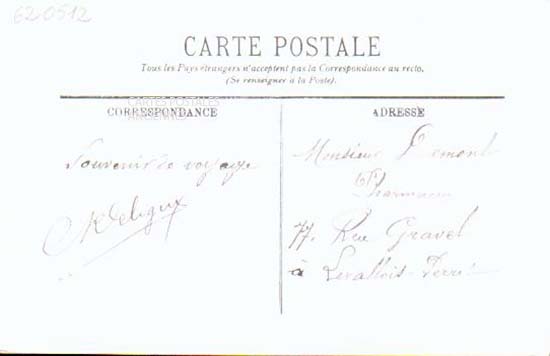 620512
CARTE POSTALE
Tous les Pays étrangers n'acceptent pas la Correspondance au recto.
(Se renseigner à la Poste).
CARTES POSTALES
ANCIENNES
CORRESPONDANCE
Souvenir de voyage
ADRESSE
Monsieur Demont
Pharmacien
77. Rue Gravel
à Levallois-Perret